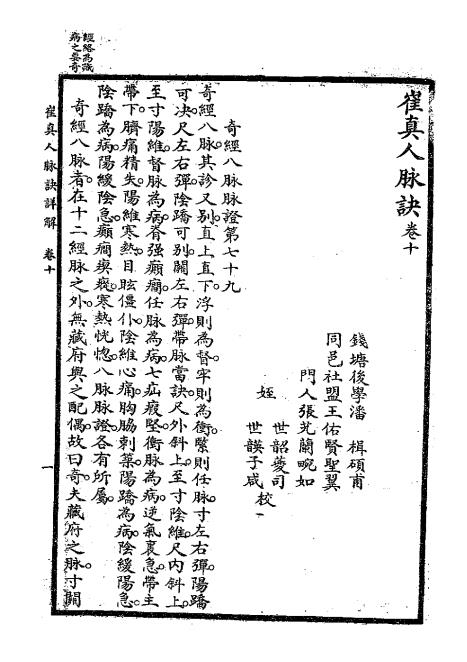 崔真人脉訣卷十
錢塘後學潘 楫碩甫
同邑社盟王佑賢聖翼
門人張 蘭畹如
姪 世韶夔司
世謨子咸 校
奇經八脉脉證第七十九
奇經八脉其診又别直上直下浮則為督牢則為衝緊則任脉寸左右彈陽蹻
可决尺左右彈陰蹻可别關左右彈帶脉當訣尺外斜上至寸陰維尺内斜上
至寸陽維督脉為病脊强癲癇任脉為病七疝瘕堅衝脉為病逆氣裏急帶主
帶下臍痛精失陽維寒熱目眩僵仆陰維心痛胸脇刺築陽蹻為病陰緩陽急
陰蹻為病陽緩陰急癲癇瘈瘲寒熱恍惚八脉脉證各有所屬
奇經八脉者在十二經脉之外無藏府與之配偶故曰奇夫藏府之脉寸關
經絡為藏
病之奚奇
崔真人脉訣詳解 卷十 一